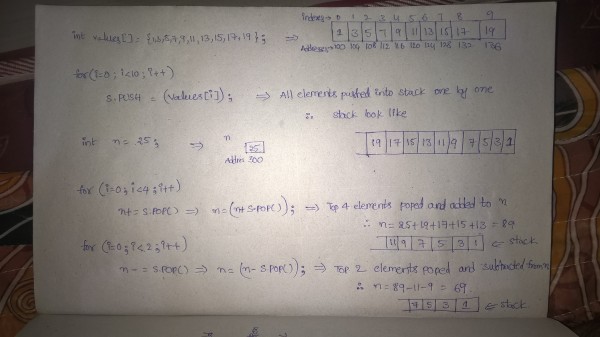 Indexes→ 0 1 2 3 4 5 6 7 8 9
int values[] = {1,3,5,7,9,11,13,15,17,19}; ⇒ 1 3 5 7 9 11 13 15 17 19
Addresses→ 100 104 108 112 116 120 124 128 132 136
for(i=0; i<10; i++)
S.PUSH = (values[i]); ⇒ All elements pushed into stack one by one
∴ stack look like
int n = 25; ⇒ n 25 19 17 15 13 11 9 7 5 3 1
Addres 300
for (i=0; i<4; i++)
n+= S.POP() ⇒ n=(n+S.POP()); ⇒ Top 4 elements poped and added to n
∴ n = 25+19+17+15+13 = 89
11 9 7 5 3 1 ⇐ stack
for (i=0; i<2; i++)
n-= S.POP() ⇒ n=(n-S.POP()); ⇒ Top 2 elements poped and subtracted from n
∴ n=89-11-9 = 69
7 5 3 1 ⇐ stack